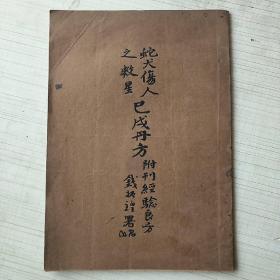 蛇犬傷人
之救星
巳戌丹方
附刊經驗良方
錢
署